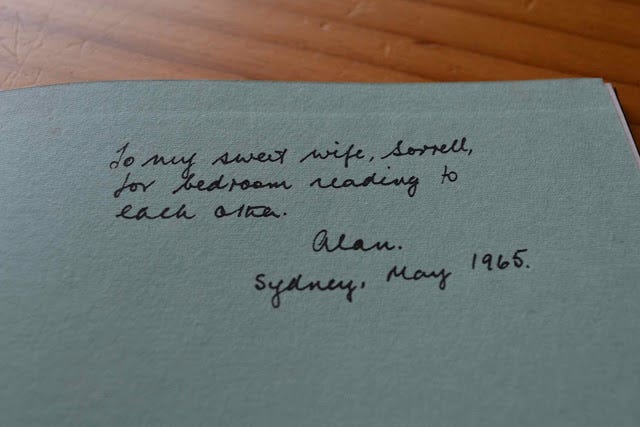 To my sweet wife, Sorrell,
for bedroom reading to
each other.
Alan.
Sydney, May 1965.